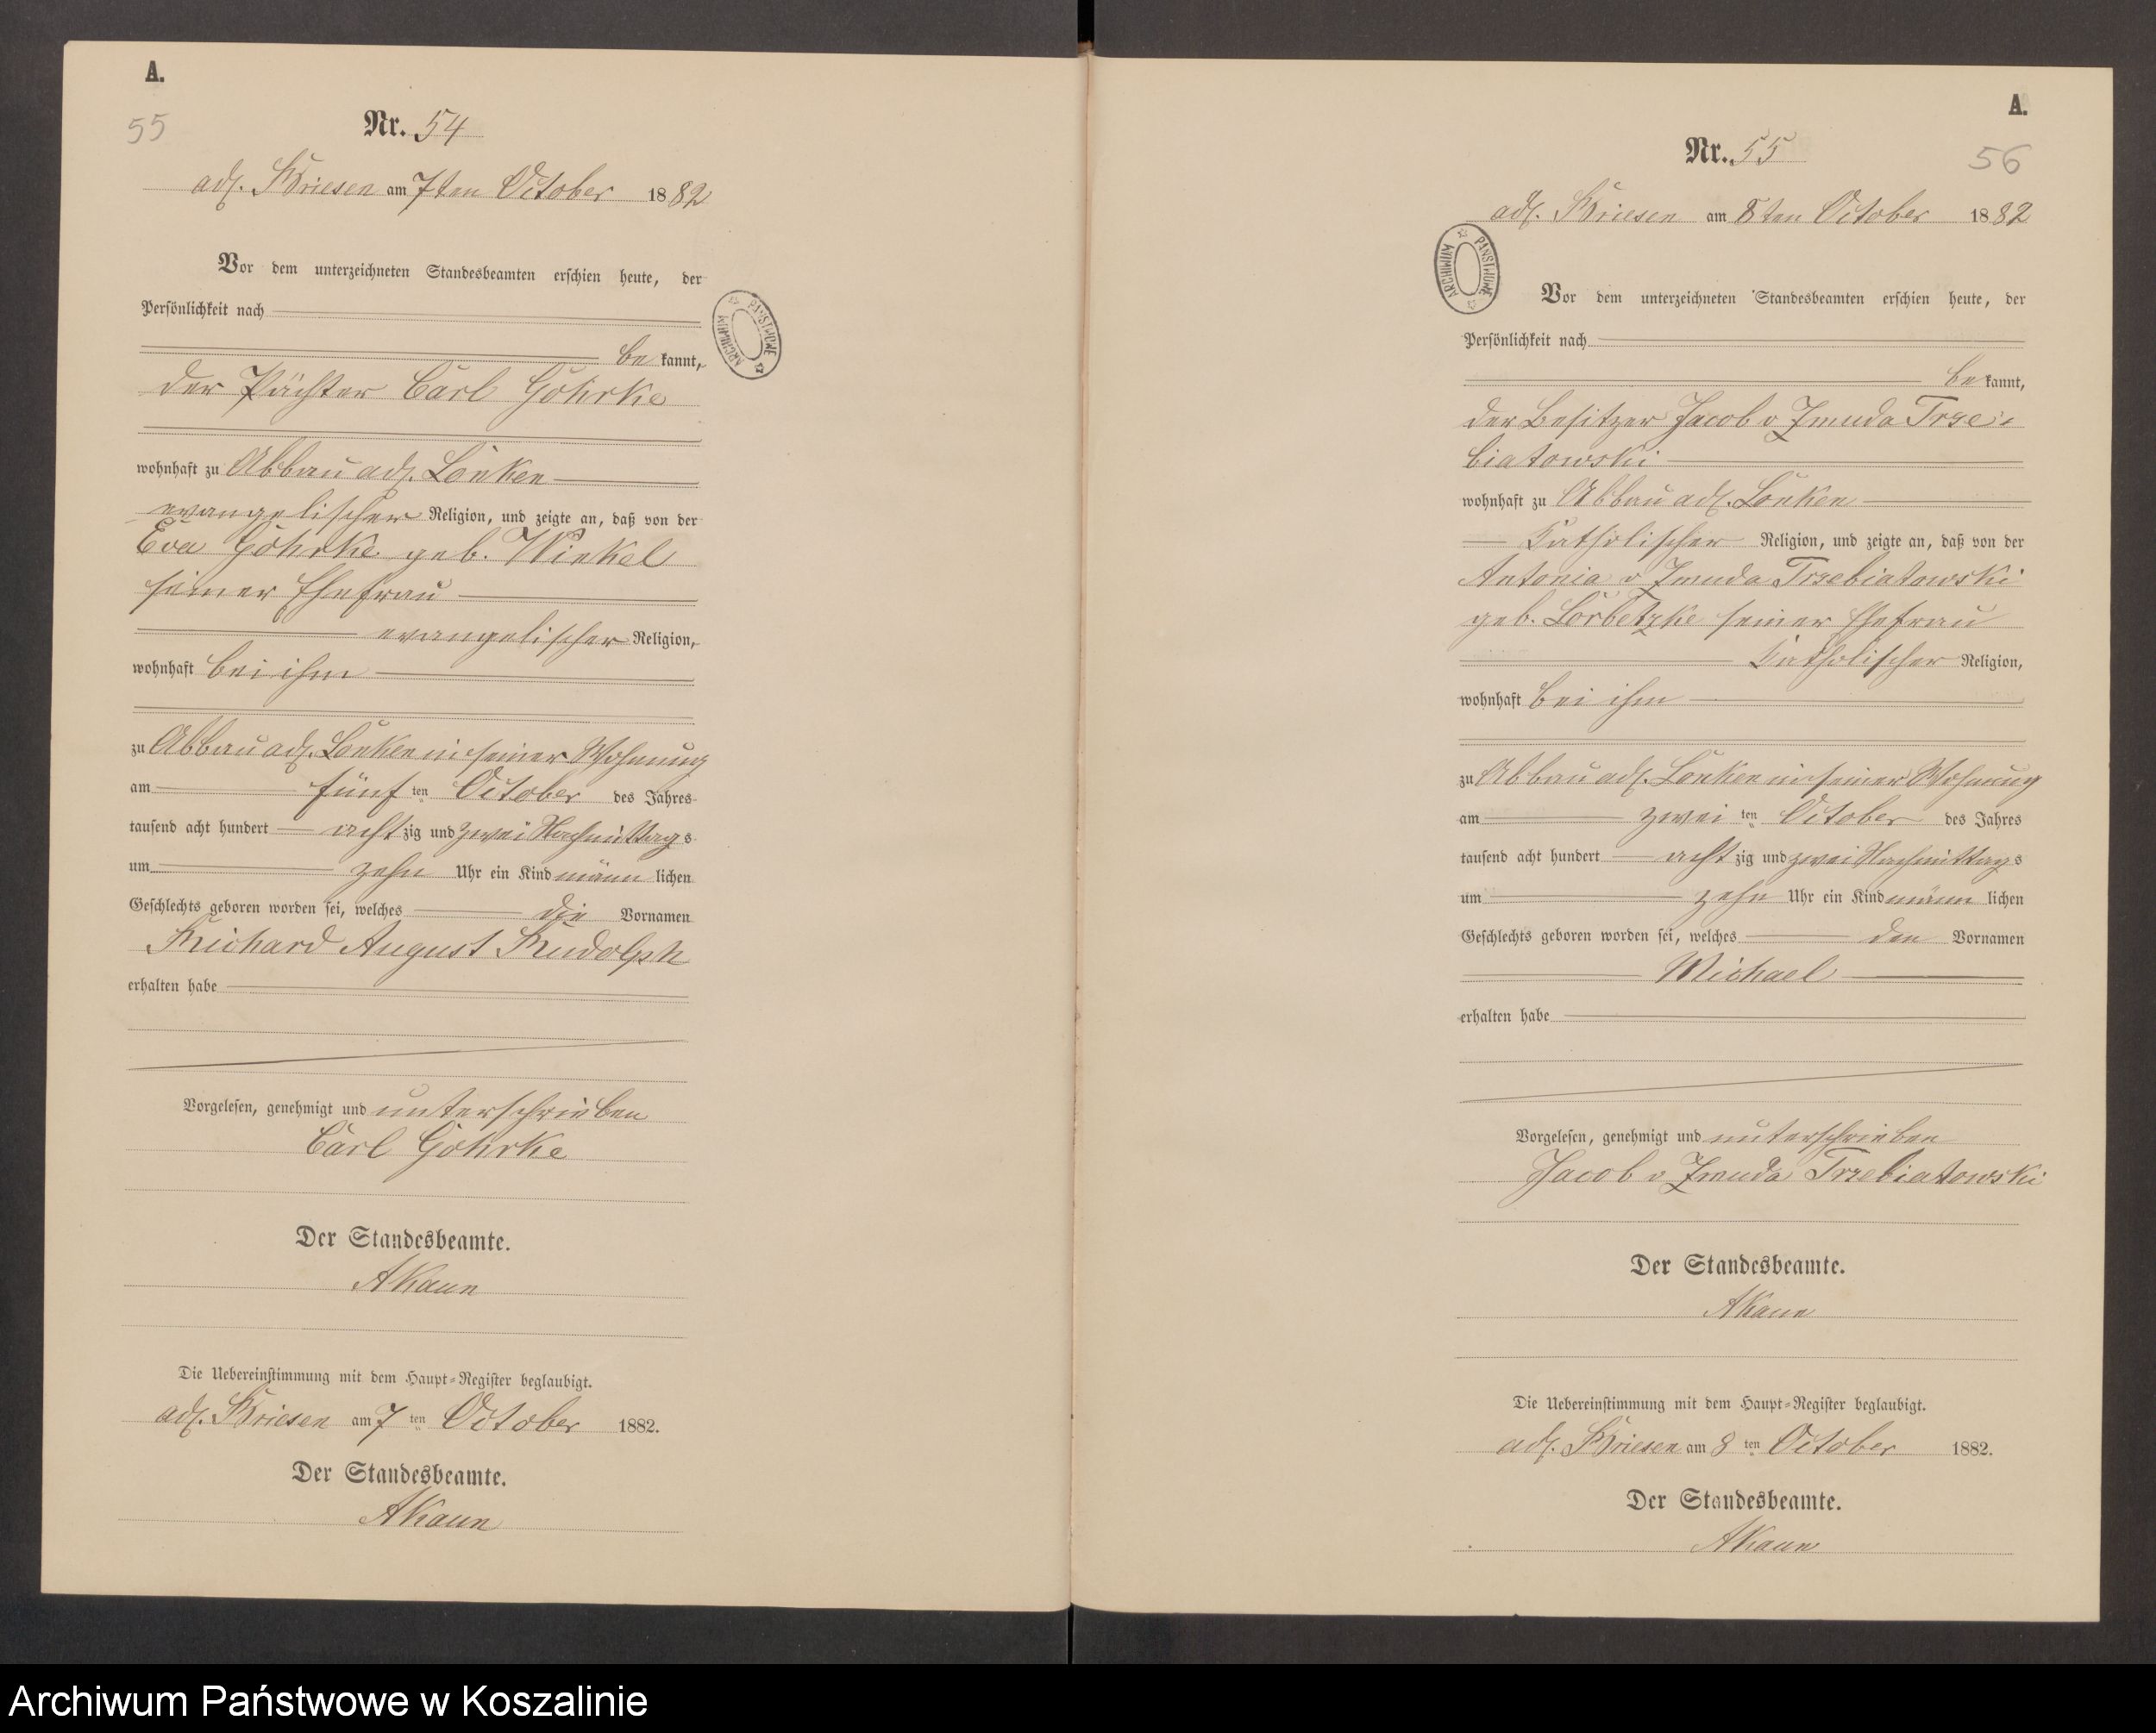 A.
55
Nr. 54
adl. Briesen am 7ten October 1882
Vor dem unterzeichneten Standesbeamten erschien heute, der
Persönlichkeit nach
be kannt,
der Pächter Carl Göhrke
wohnhaft zu Abbau adl. Lonken
evangelischer Religion, und zeigte an, daß von der
Eva Göhrke geb. Winkel
seiner Ehefrau
evangelischer Religion,
wohnhaft bei ihm
zu Abbau adl. Lonken in seiner Wohnung
am fünf ten October des Jahres
tausend acht hundert acht zig und zwei Nachmittags
um zehn Uhr ein Kind männ lichen
Geschlechts geboren worden sei, welches die Vornamen
Richard August Rudolph
erhalten habe
Vorgelesen, genehmigt und unterschrieben
Carl Göhrke
Der Standesbeamte.
AKaun
Die Uebereinstimmung mit dem Haupt-Register beglaubigt.
adl. Briesen am 7 ten October 1882.
Der Standesbeamte.
AKaun
ARCHIWUM PAŃSTWOWE
A.
56
Nr. 55
adl. Briesen am 8ten October 1882
Vor dem unterzeichneten Standesbeamten erschien heute, der
Persönlichkeit nach
be kannt,
der Besitzer Jacob v Zmuda Trze-
biatowski
wohnhaft zu Abbau adl. Lonken
katholischer Religion, und zeigte an, daß von der
Antonia v Zmuda Trzebiatowski
geb. Lorbetzke seiner Ehefrau
katholischer Religion,
wohnhaft bei ihm
zu Abbau adl. Lonken in seiner Wohnung
am zwei ten October des Jahres
tausend acht hundert acht zig und zwei Nachmittags
um zehn Uhr ein Kind männ lichen
Geschlechts geboren worden sei, welches den Vornamen
Michael
erhalten habe
Vorgelesen, genehmigt und unterschrieben
Jacob v Zmuda Trzebiatowski
Der Standesbeamte.
AKaun
Die Uebereinstimmung mit dem Haupt-Register beglaubigt.
adl. Briesen am 8 ten October 1882.
Der Standesbeamte.
AKaun
ARCHIWUM PAŃSTWOWE
Archiwum Państwowe w Koszalinie